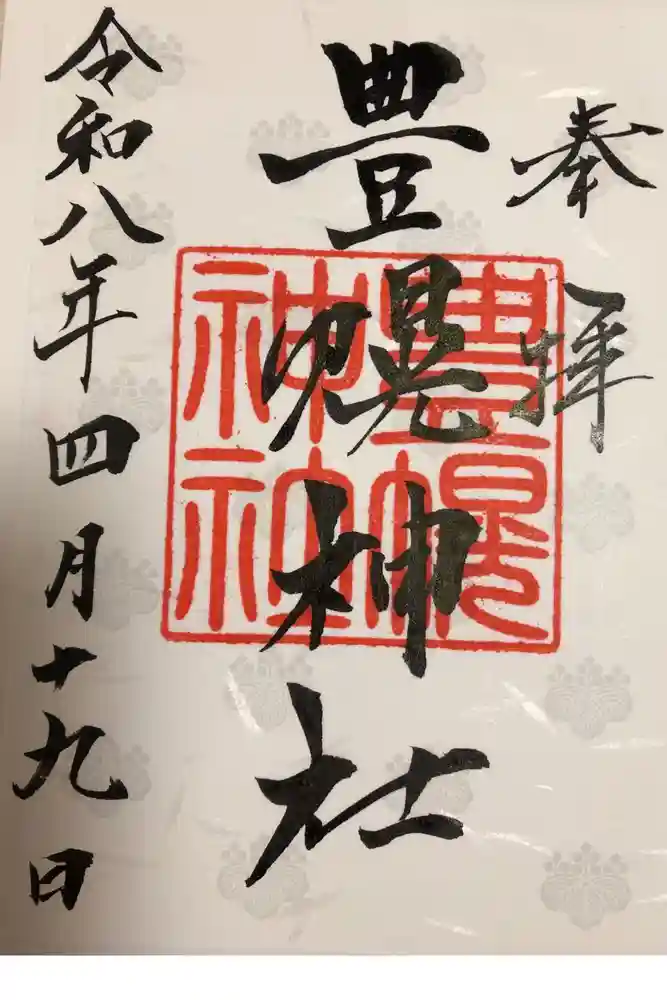 奉拝
豊幌神社
豊幌
神社
令和八年四月十九日